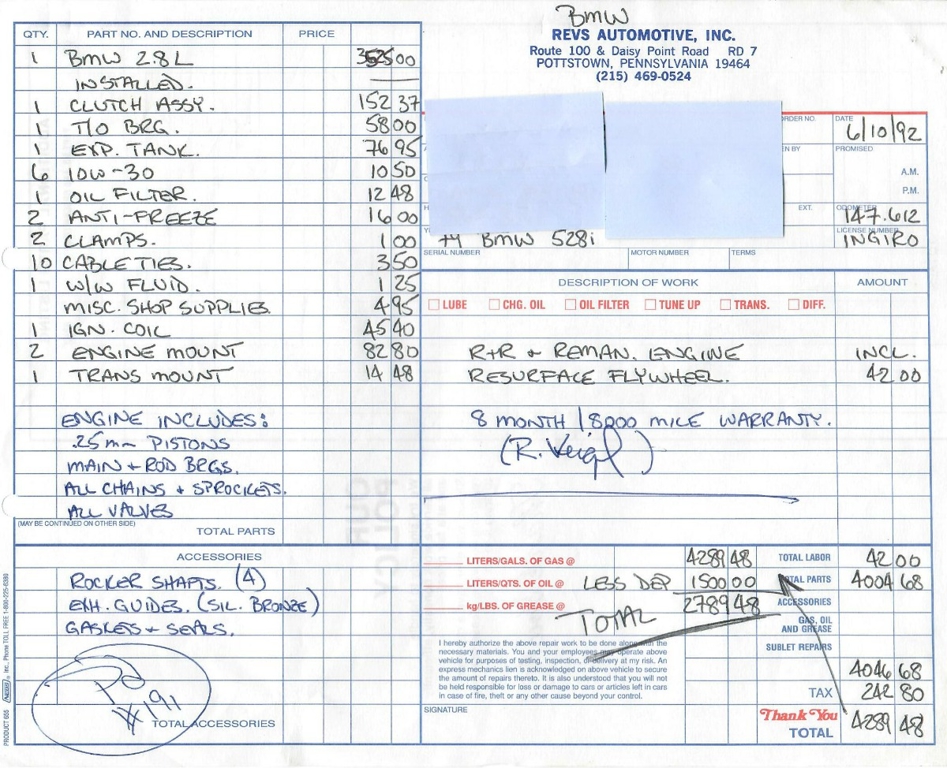 BMW
REVS AUTOMOTIVE, INC.
Route 100 & Daisy Point Road RD 7
POTTSTOWN, PENNSYLVANIA 19464
(215) 469-0524
QTY. PART NO. AND DESCRIPTION PRICE
1 BMW 2.8L 3525 00
INSTALLED.
1 CLUTCH ASSY. 152 37
1 T/O BRG. 58 00
1 EXP. TANK. 76 95
6 10W-30 10 50
1 OIL FILTER. 12 48
2 ANTI-FREEZE 16 00
2 CLAMPS. 1 00
10 CABLE TIES. 3 50
1 W/W FLUID. 1 25
MISC. SHOP SUPPLIES. 4 95
1 IGN. COIL 45 40
2 ENGINE MOUNT 82 80
1 TRANS MOUNT 14 48
ENGINE INCLUDES:
.25mm PISTONS
MAIN + ROD BRGS.
ALL CHAINS + SPROCKETS.
ALL VALVES
(MAY BE CONTINUED ON OTHER SIDE)
TOTAL PARTS
ACCESSORIES
ROCKER SHAFTS. (4)
EXH. GUIDES. (SIL. BRONZE)
GASKETS + SEALS.
TOTAL ACCESSORIES
191
PRODUCT 655
Inc., Phone TOLL FREE 1-800-225-6380
ORDER NO. DATE
6/10/92
EN BY PROMISED
A.M.
P.M.
EXT. ODOMETER
147.612
LICENSE NUMBER
INGIRO
79 BMW 528i
SERIAL NUMBER MOTOR NUMBER TERMS
DESCRIPTION OF WORK AMOUNT
LUBE CHG. OIL OIL FILTER TUNE UP TRANS. DIFF.
R+R + REMAN. ENGINE INCL.
RESURFACE FLYWHEEL. 42 00
8 MONTH / 8000 MILE WARRANTY.
(R. Veigl)
LITERS/GALS. OF GAS @ 4289 48 TOTAL LABOR 42 00
LITERS/QTS. OF OIL @ LESS DEP 1500 00 TOTAL PARTS 4004 68
kg/LBS. OF GREASE @ TOTAL 2789 48 ACCESSORIES
GAS, OIL
AND GREASE
SUBLET REPAIRS
I hereby authorize the above repair work to be done along with the
necessary materials. You and your employees may operate above
vehicle for purposes of testing, inspection, or delivery at my risk. An
express mechanics lien is acknowledged on above vehicle to secure
the amount of repairs thereto. It is also understood that you will not
be held responsible for loss or damage to cars or articles left in cars
in case of fire, theft or any other cause beyond your control.
SIGNATURE
4046 68
TAX 242 80
Thank You
TOTAL 4289 48